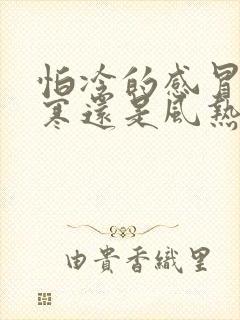 怕冷的感冒
寒還是風熱
由貴香織里